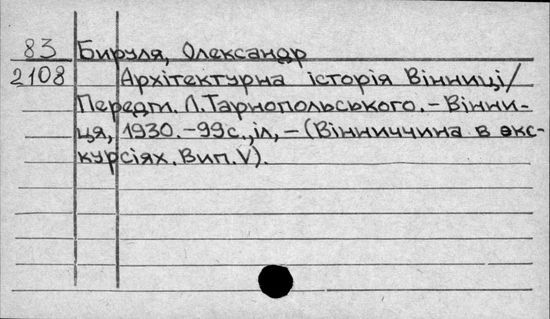 83 Бируля, Олександр
2108 Архітектурна історія Вінниці/
Передм. Л.Тарнопольського.-Вінни-
ця, 1930.-99с., іл,-(Вінниччина в екс-
курсіях. Вип. V).